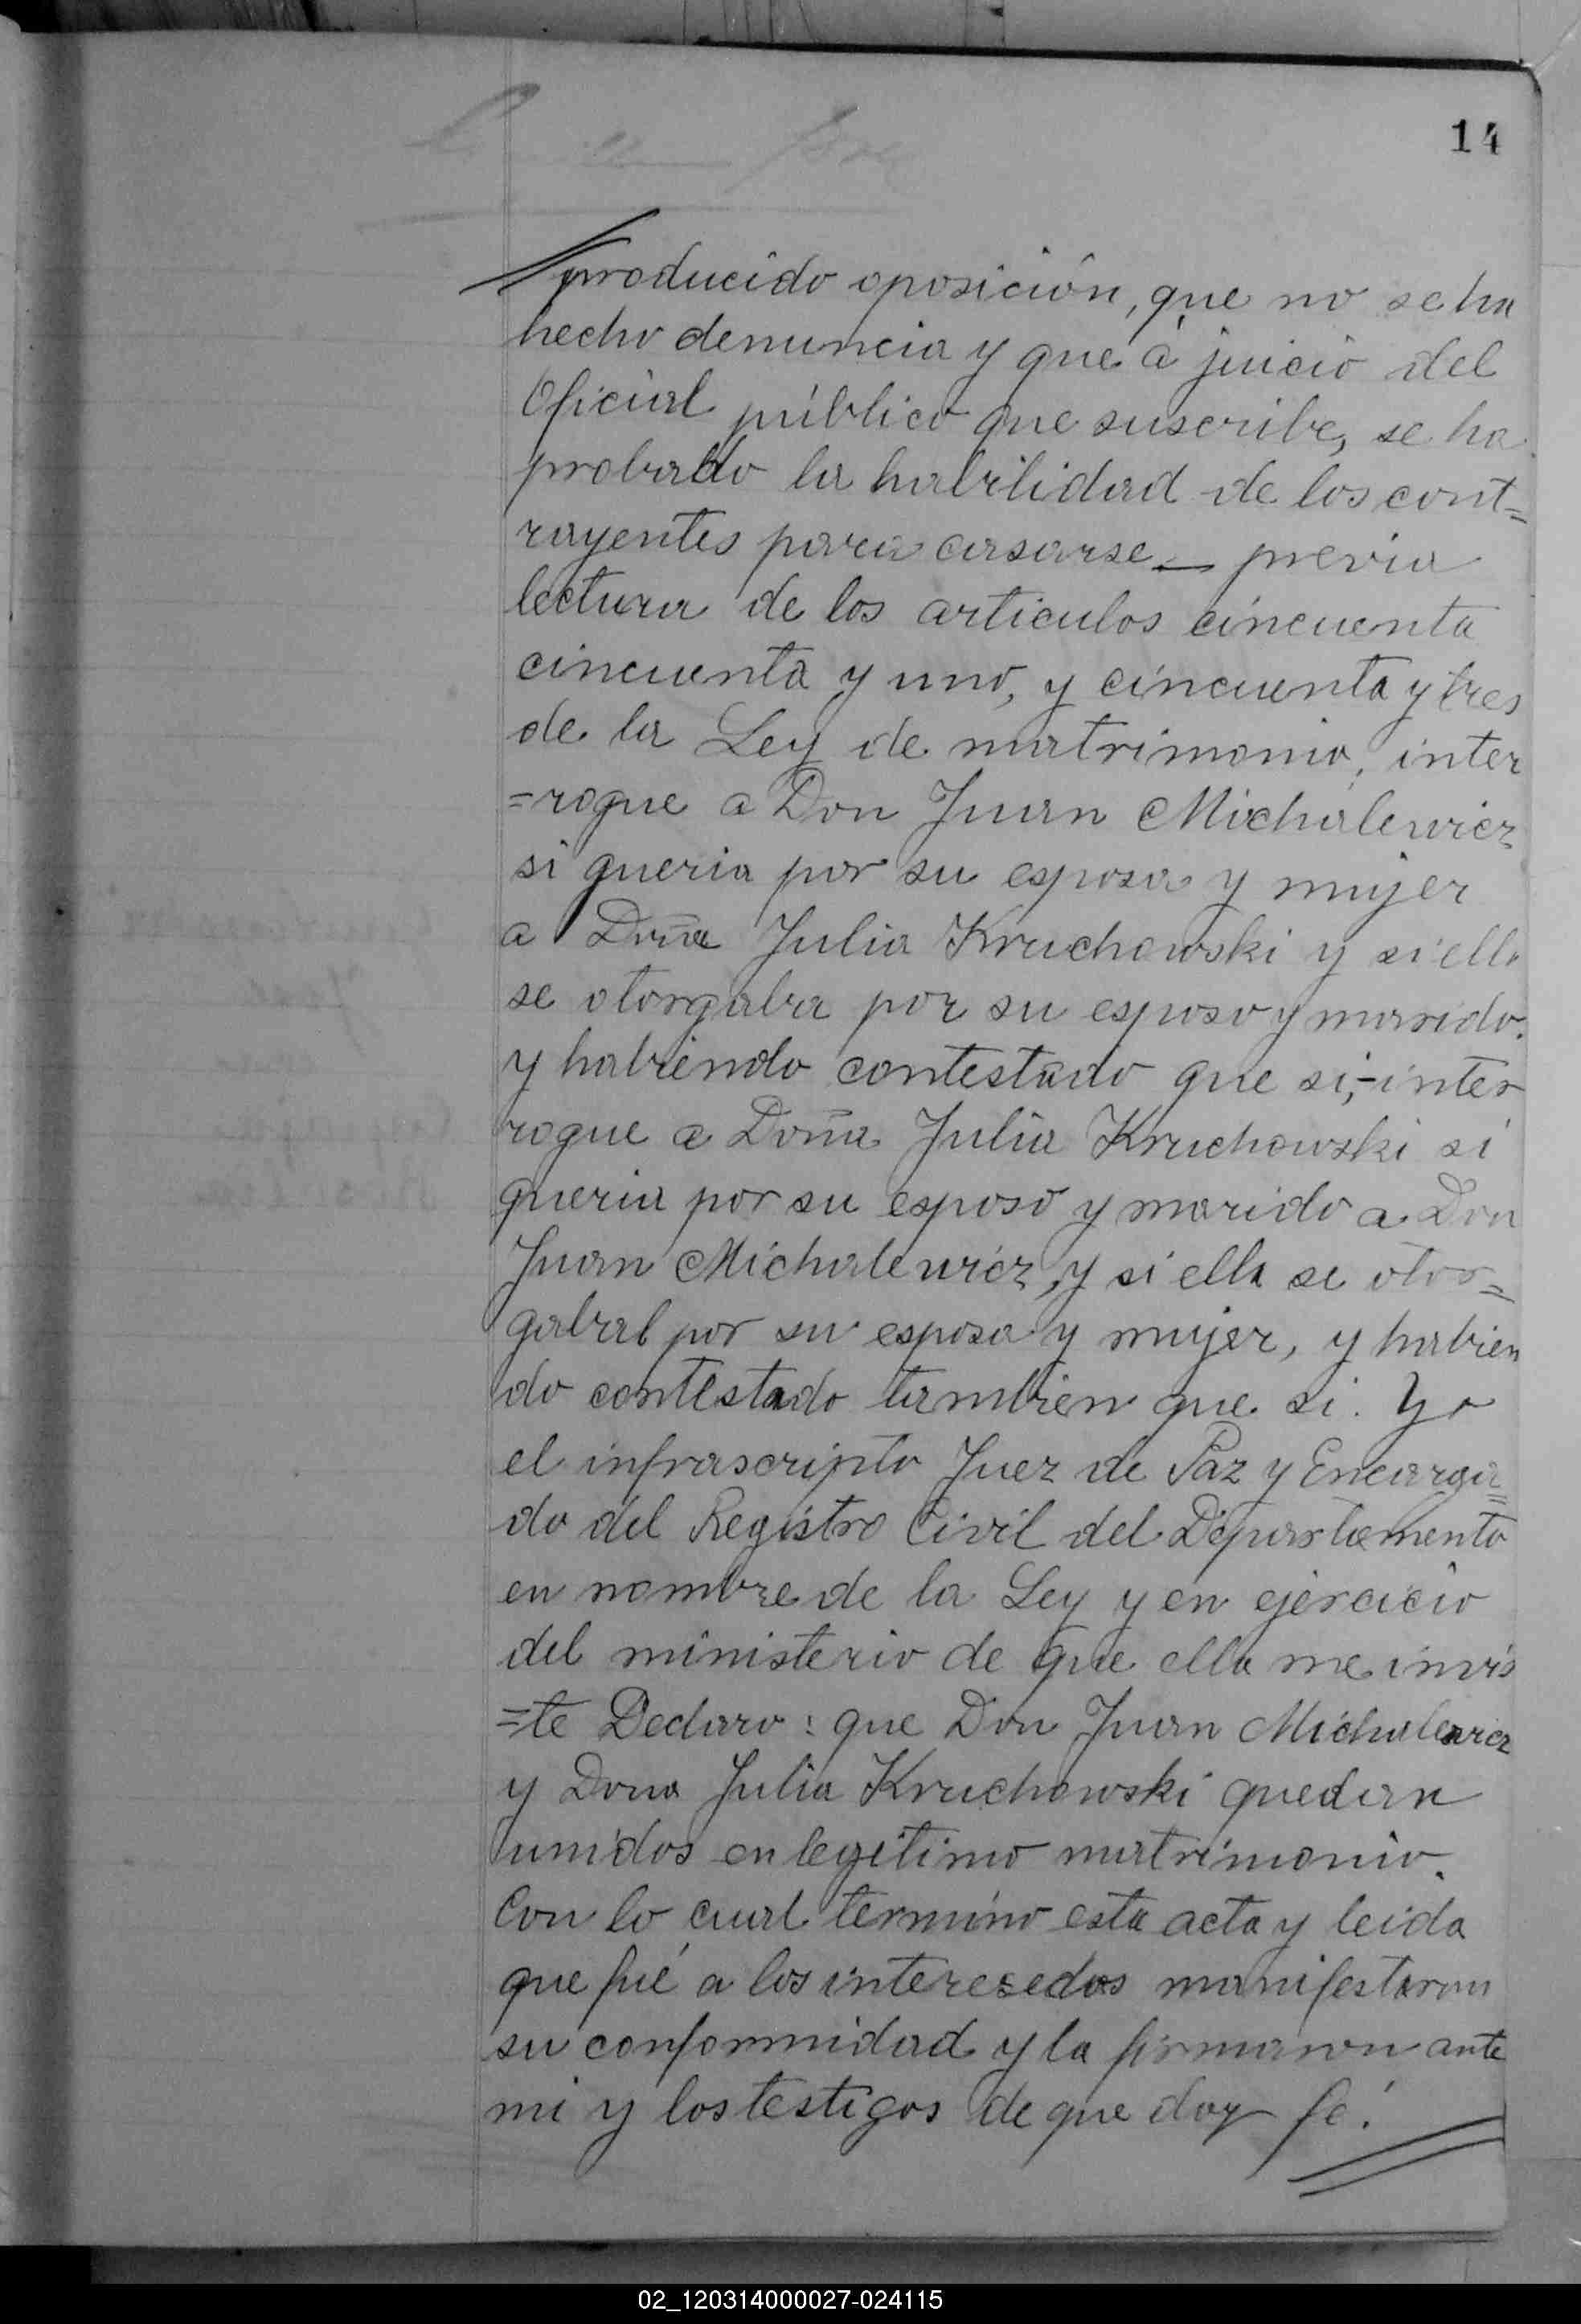 14
producido oposición, que no se ha
hecho denuncia y que á juicio del
Oficial público que suscribe, se ha
probado la habilidad de los cont=
rayentes para casarse — previa
lectura de los articulos cincuenta
cincuenta y uno, y cincuenta y tres
de la Ley de matrimonio, inter
=rogue a Don Juan Michalewicz
si queria por su esposa y mujer
a Doña Julia Kruchowski y si ella
se otorgaba por su esposo y marido.
y habiendo contestado que si,- inter
rogue a Doña Julia Kruchowski si
queria por su esposo y marido a Don
Juan Michalewicz, y si ella se otor=
gabal por su esposa y mujer, y habien
do contestado tambien que si. Yo
el infrascripto Juez de Paz y Encarga=
do del Registro Civil del Departamento
en nombre de la Ley y en ejercicio
del ministerio de que ella me invis
=te Declaro: que Don Juan Michalewicz
y Dona Julia Kruchowski quedan
unidos en legitimo matrimonio.
Con lo cual termino esta acta y leida
que fué a los interesedos manifestaron
su conformidad y la firmaron ante
mi y los testigos de que doy fé.
02_120314000027-024115